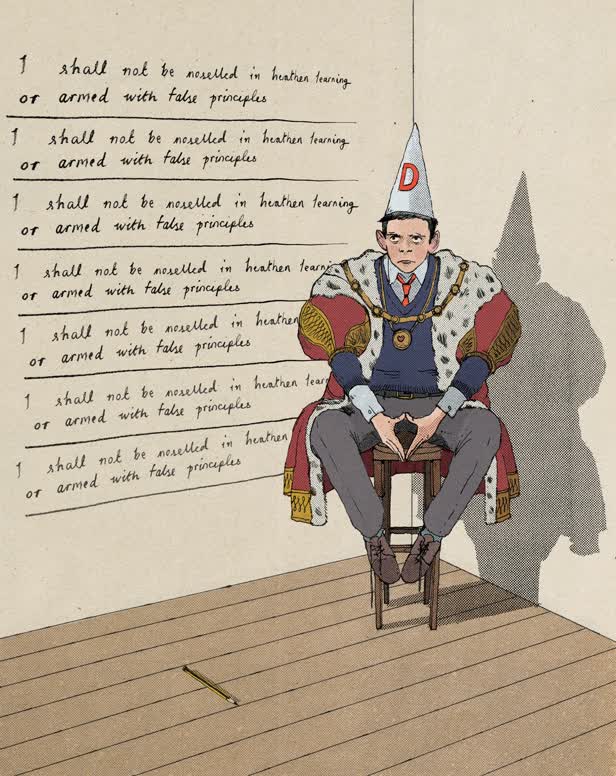 I shall not be noselled in heathen learning
or armed with false principles
I shall not be noselled in heathen learning
or armed with false principles
I shall not be noselled in heathen learning
or armed with false principles
I shall not be noselled in heathen learnin
or armed with false principles
I shall not be noselled in heathen
or armed with false principles
I shall not be noselled in heathen lear
or armed with false principles
I shall not be noselled in heathen
or armed with false principles
D